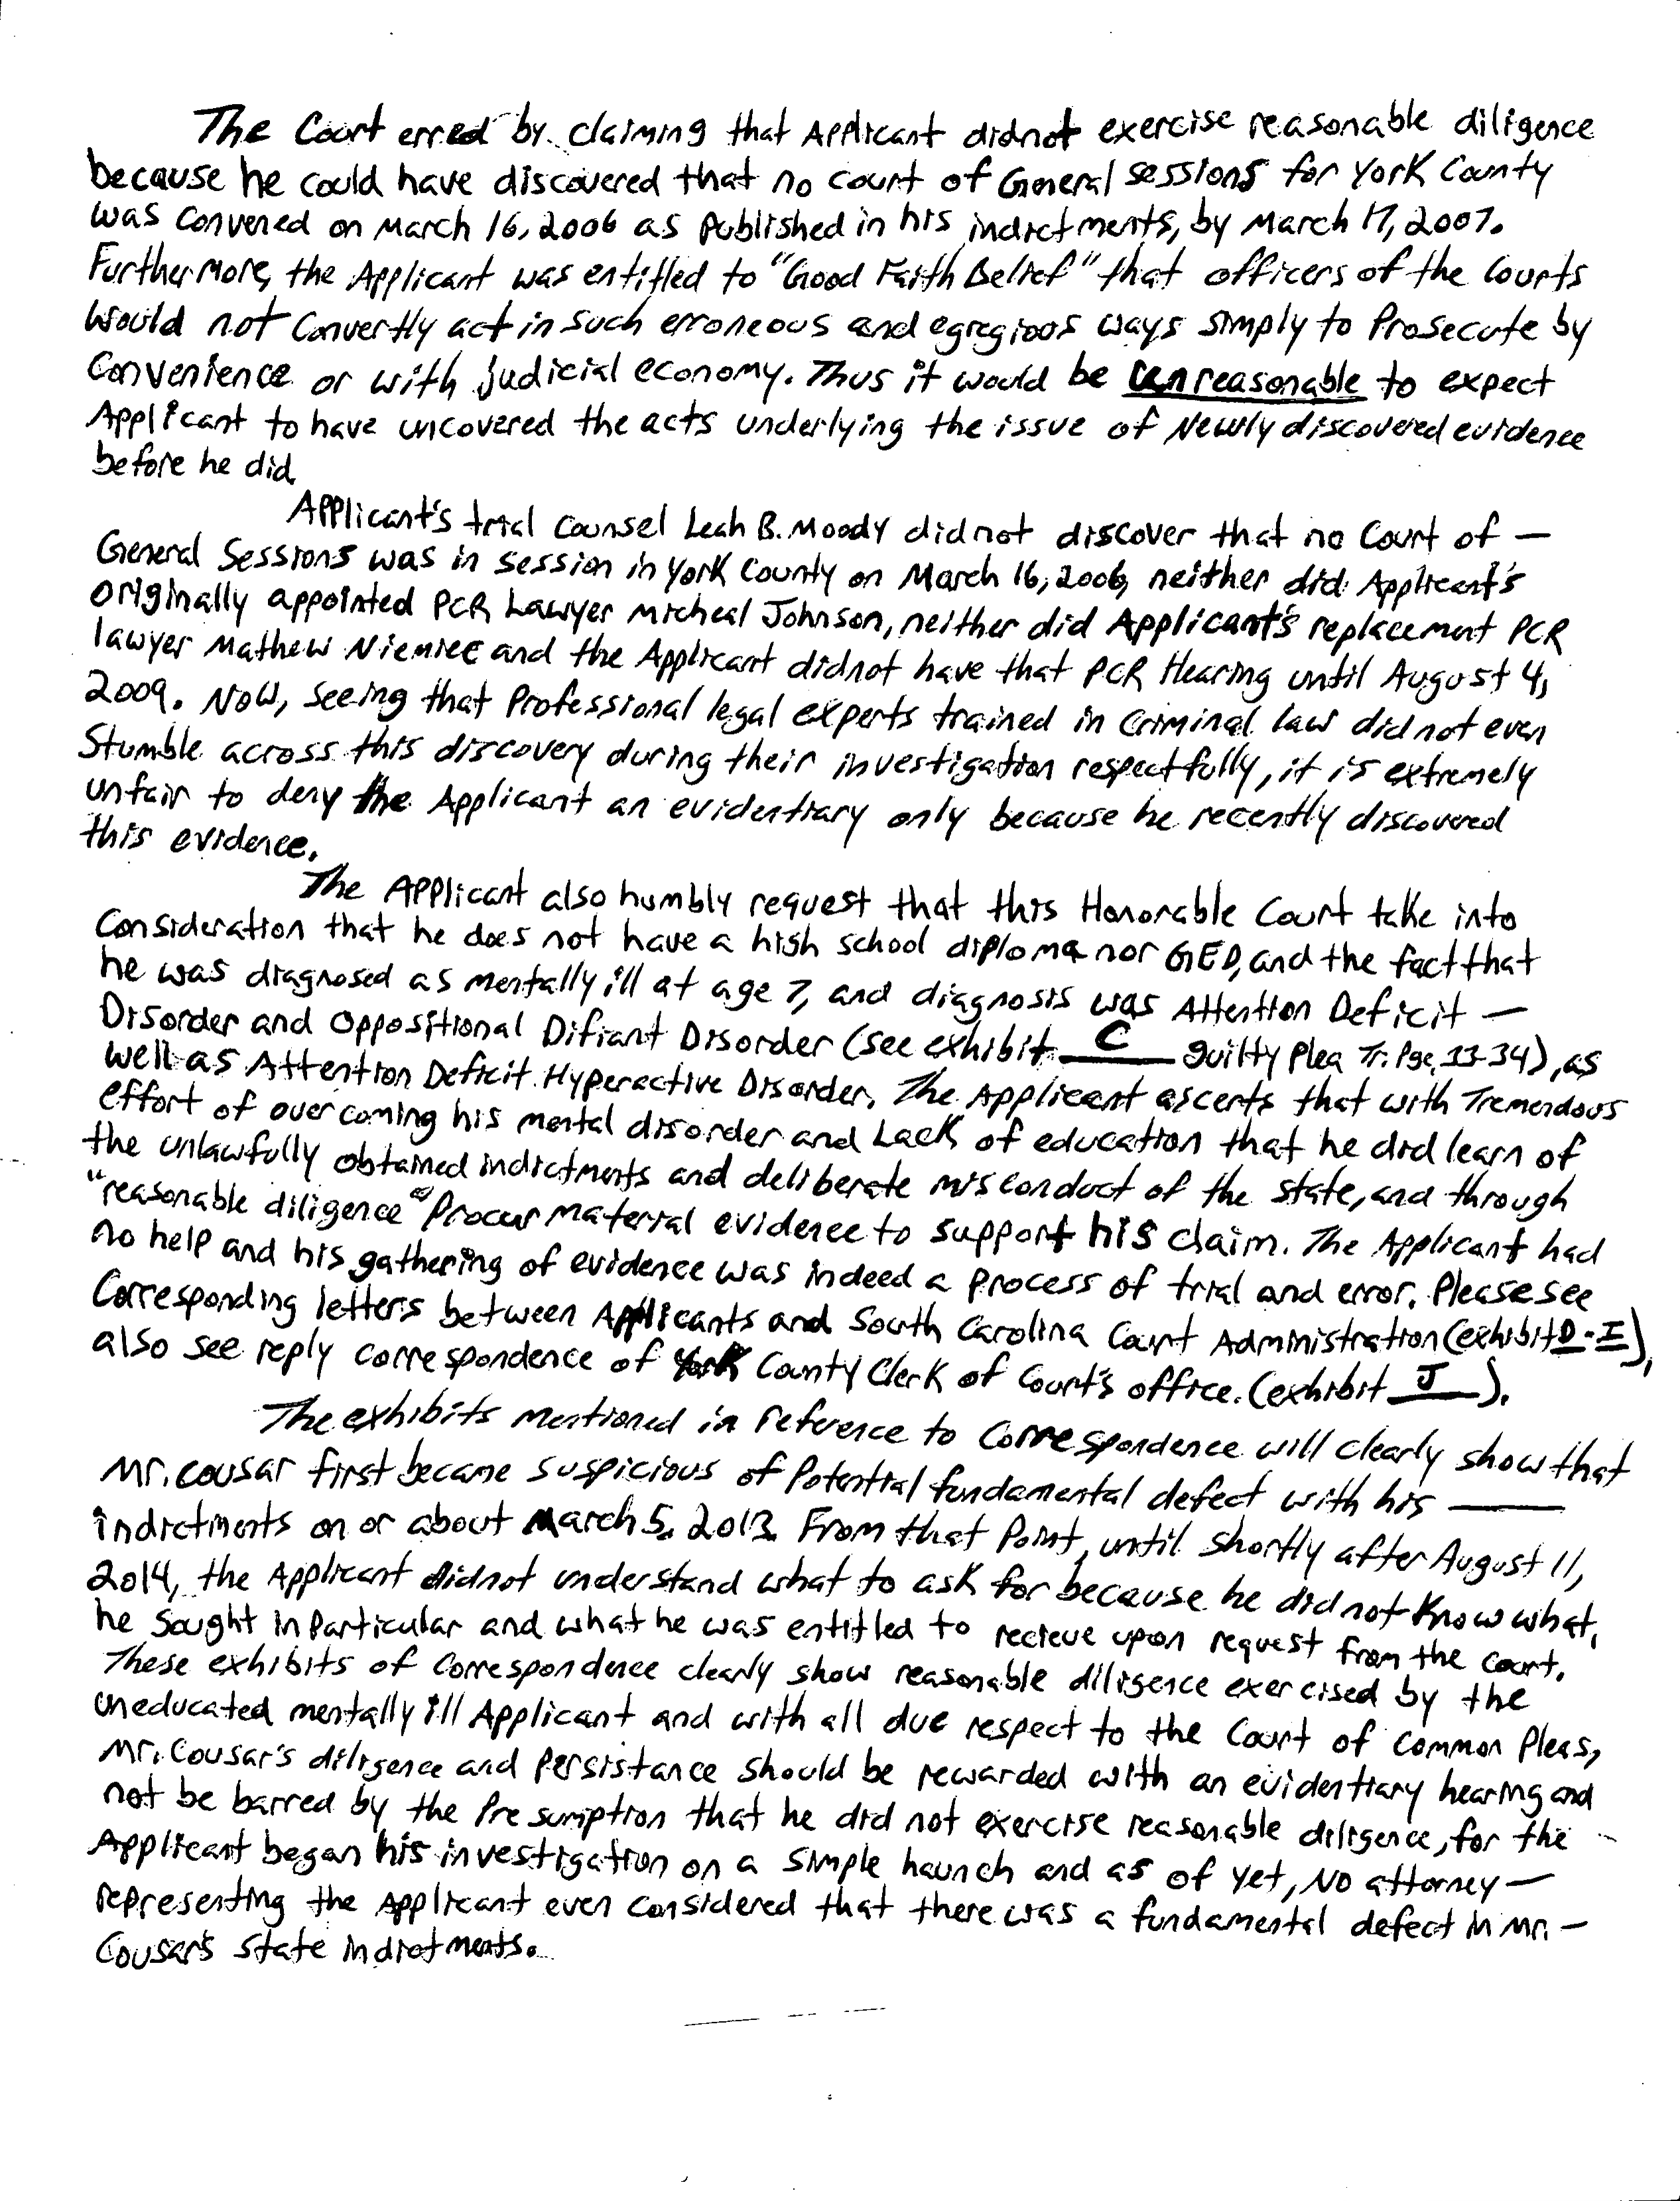 The Court erred by claiming that Applicant didnot exercise reasonable diligence
because he could have discovered that no court of General sessions for York County
was convened on March 16, 2006 as published in his indictments, by March 17, 2007.
Furthermore, the Applicant was entitled to "Good Faith Belief" that officers of the Courts
would not Convertly act in such erroneous and egregious ways simply to Prosecute by
Convenience or with judicial economy. Thus it would be unreasonable to expect
Applicant to have uncovered the acts underlying the issue of Newly discovered evidence
before he did.
Applicant's trial Counsel Leah B. Moody did not discover that no Court of —
General Sessions was in session in York County on March 16, 2006, neither did Applicant's
originally appointed PCR Lawyer Micheal Johnson, neither did Applicant's replacement PCR
lawyer Mathew Niemiec and the Applicant didnot have that PCR Hearing until August 4,
2009. Now, seeing that Professional legal experts trained in Criminal law did not even
Stumble across this discovery during their investigation respectfully, it is extremely
unfair to deny the Applicant an evidentiary only because he recently discovered
this evidence.
The Applicant also humbly request that this Honorable Court take into
Consideration that he does not have a high school diploma nor GED, and the fact that
he was diagnosed as mentally ill at age 7, and diagnosis was Attention Deficit —
Disorder and Oppositional Difiant Disorder (see exhibit C guilty Plea Tr. Pge, 33-34), as
well as Attention Deficit Hyperactive Disorder. The Applicant ascerts that with Tremendous
effort of overcoming his mental disorder and Lack of education that he did learn of
the unlawfully obtained indictments and deliberate misconduct of the state, and through
"reasonable diligence" Procur material evidence to support his claim. The Applicant had
no help and his gathering of evidence was indeed a process of trial and error. Please see
Corresponding letters between Applicants and South Carolina Court Administration (exhibit D-I),
also see reply correspondence of York County Clerk of Court's office. (exhibit J ).
The exhibits mentioned in reference to Correspondence will clearly show that
Mr. Cousar first became suspicious of Potential fundamental defect with his —
indictments on or about March 5, 2013. From that Point, until shortly after August 11,
2014, the Applicant didnot understand what to ask for because he did not know what
he sought in Particular and what he was entitled to recieve upon request from the court.
These exhibits of Correspondence clearly show reasonable diligence exercised by the
uneducated mentally ill Applicant and with all due respect to the Court of Common Pleas,
Mr. Cousar's diligence and Persistance should be rewarded with an evidentiary hearing and
not be barred by the Presumption that he did not exercise reasonable diligence, for the
Applicant began his investigation on a simple haunch and as of yet, NO attorney —
representing the Applicant even considered that there was a fundamental defect in Mr. —
Cousar's State indictments.